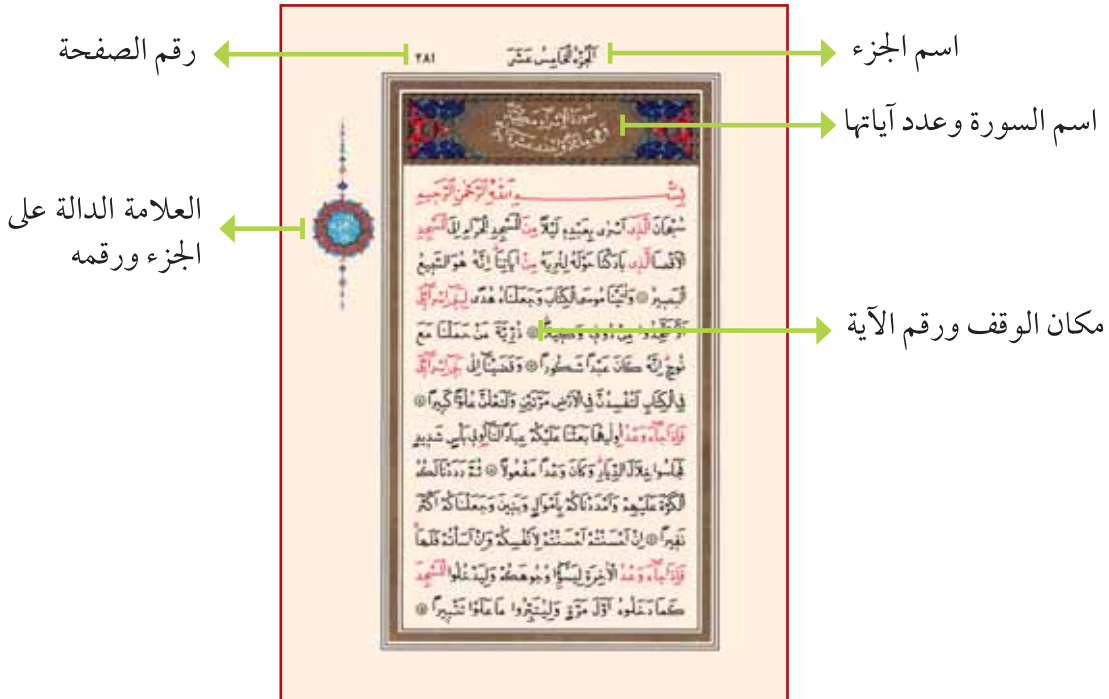 اسم الجزء
رقم الصفحة
اسم السورة وعدد آياتها
العلامة الدالة على
الجزء ورقمه
مكان الوقف ورقم الآية
الجزء الخامس عشر
٢٨١
سورة الإسراء
بسم الله الرحمن الرحيم
سبحان الذي أسرى بعبده ليلا من المسجد الحرام إلى المسجد
الأقصا الذي باركنا حوله لنريه من آياتنا إنه هو السميع
البصير وآتينا موسى الكتاب وجعلناه هدى لبني إسرائيل
ألا تتخذوا من دوني وكيلا ذرية من حملنا مع
نوح إنه كان عبدا شكورا وقضينا إلى بني إسرائيل
في الكتاب لتفسدن في الأرض مرتين ولتعلن علوا كبيرا
فإذا جاء وعد أوليهما بعثنا عليكم عبادا لنا أولي بأس شديد
فجاسوا خلال الديار وكان وعدا مفعولا ثم رددنا لكم
الكرة عليهم وأمددناكم بأموال وبنين وجعلناكم أكثر
نفيرا إن أحسنتم أحسنتم لأنفسكم وإن أسأتم فلها
فإذا جاء وعد الآخرة ليسوؤا وجوهكم وليدخلوا المسجد
كما دخلوه أول مرة وليتبروا ما علوا تتبيرا